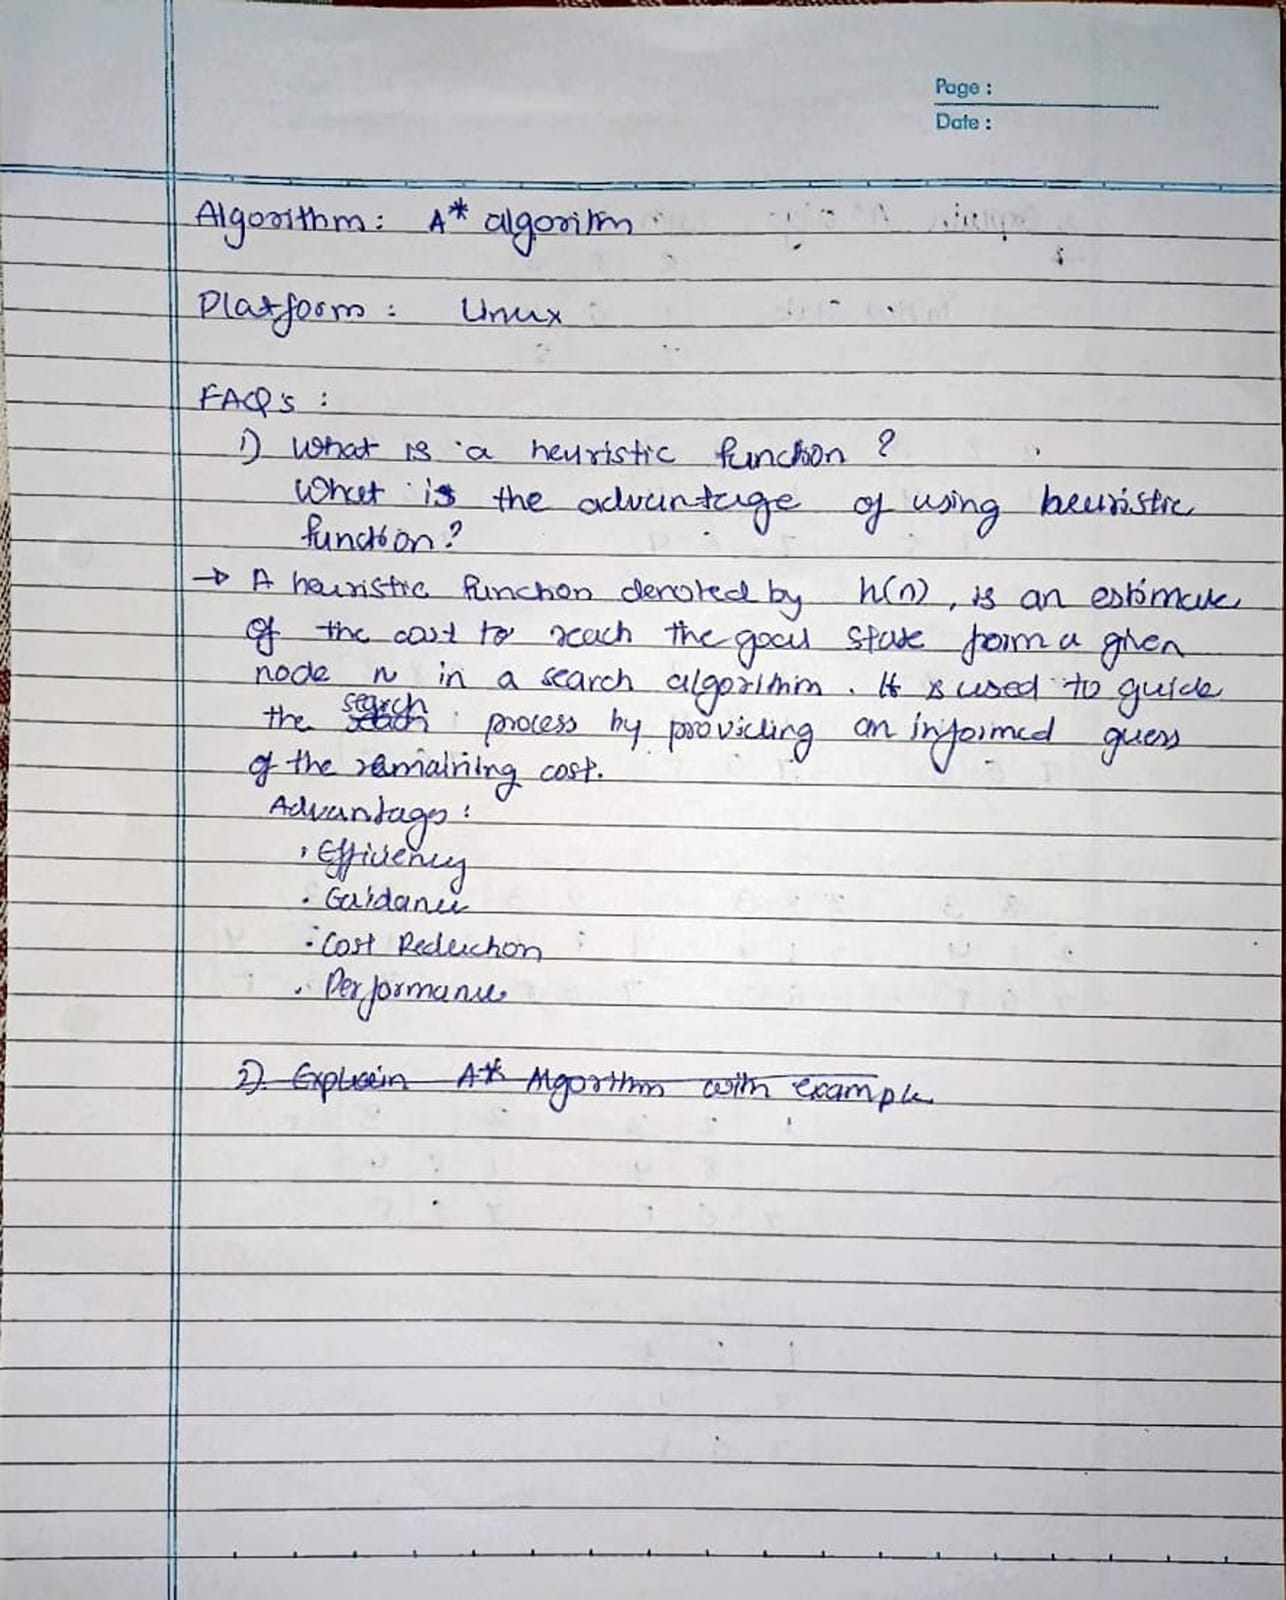 Page :
Date :
Algorithm : A* algorithm
Platform : Linux
FAQ's :
1) What is a heuristic function ?
What is the advantage of using heuristic
function ?
→ A heuristic function denoted by h(n), is an estimate
of the cost to reach the goal state form a given
node n in a search algorithm. It is used to guide
the search process by providing an informed guess
of the remaining cost.
Advantages :
· Efficiency
· Guidance
· Cost Reduction
· Performance
2) Explain A* Algorithm with example